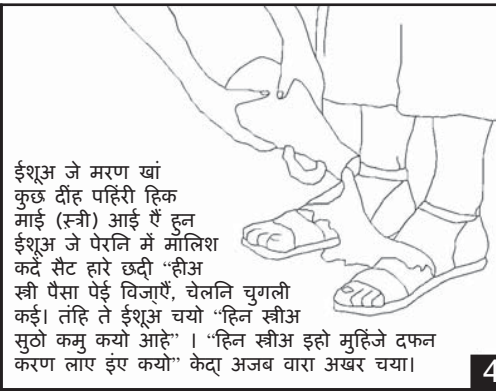 ईशूअ जे मरण खां
कुछ दींह पहिंरी हिक
माई (स्त्री) आई ऐं हुन
ईशूअ जे पेरनि में मालिश
कदें सैट हारे छदी् “हीअ
स्त्री पैसा पेई विजा॒ऐं, चेलनि चुगली
कई। तंहि ते ईशूअ चयो “हिन स्त्रीअ
सुठो कमु कयो आहे” । “हिन स्त्रीअ इहो मुहिंजे दफन
करण लाए इंए कयो” केदा॒ अजब वारा अखर चया।
4